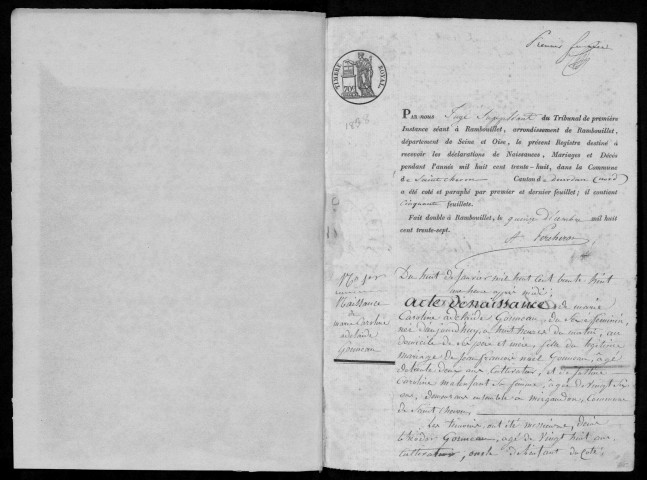 Premier feuillet
TIMBRE ROYAL
1838
PAR NOUS Juge Suppléant du Tribunal de première
Instance séant à Rambouillet, arrondissement de Rambouillet,
département de Seine et Oise, le présent Registre destiné à
recevoir les déclarations de Naissances, Mariages et Décès
pendant l'année mil huit cent trente-huit, dans la Commune
de Saint cheron Canton de dourdan
a été coté et paraphé par premier et dernier feuillet; il contient
Cinquante feuillets.
Fait double à Rambouillet, le quinze Décembre mil huit
cent trente-sept.
Naissance
de
marie Caroline
adelaide
Gouneau
Du huit de janvier mil huit Cent trente huit
une heure après midi;
acte de naissance de marie
Caroline adelaide Gouneau, du Sexe féminin,
née d'aujourd'huy, à huit heures du matin, au
domicile de Ses pere et mère, fille du légitime
mariage de jean francois noël Gouneau, agé
de trente deux ans Cultivateur, et de
Caroline malenfant Sa femme, agée de vingt Six
ans, demeurans ensemble à mirgaudon, Commune
de Saint cheron.
Les témoins ont été messieurs,
Gouneau, agé de vingt huit ans
Cultivateur, oncle de l'enfant du Coté